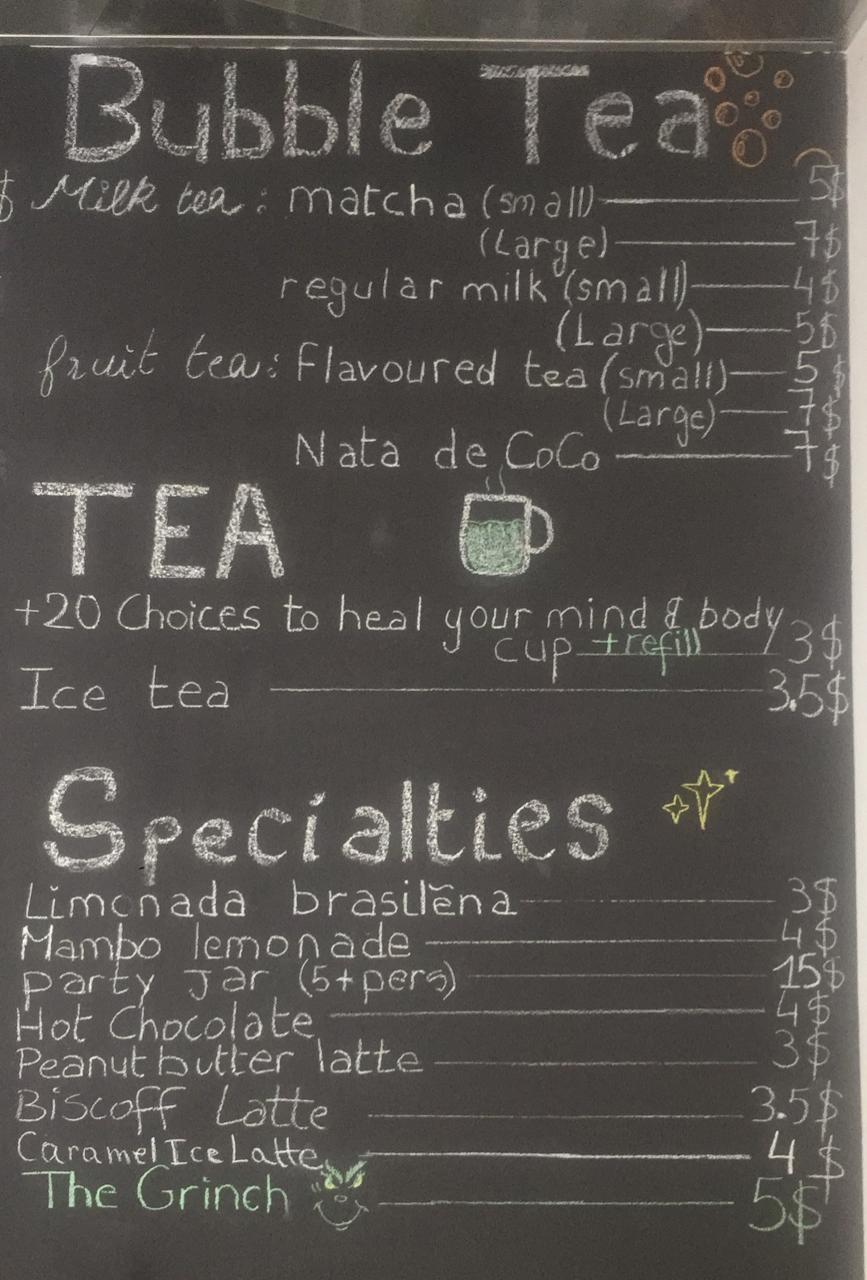 Bubble Tea
$ Milk tea: matcha (small) 5$
(Large) 7$
regular milk (small) 4$
(Large) 5$
fruit tea: Flavoured tea (small) 5$
(Large) 7$
Nata de CoCo 7$
TEA
+20 Choices to heal your mind & body
cup +refill 3$
Ice tea 3.5$
Specialties
Limonada brasilēna 3$
Mambo lemonade 4$
party Jar (5+pers) 15$
Hot Chocolate 4$
Peanut butter latte 3$
Biscoff Latte 3.5$
Caramel Ice Latte 4$
The Grinch 5$